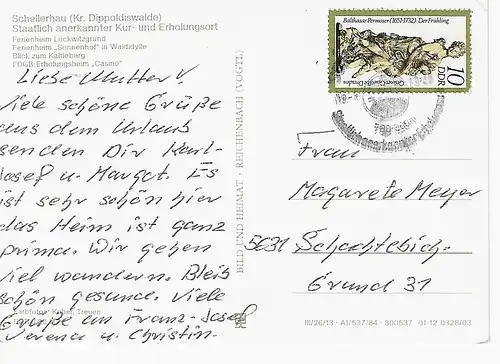 Schellerhau (Kr. Dippoldiswalde)
Staatlich anerkannter Kur- und Erholungsort
Ferienheim Lockwitzgrund
Ferienheim „Sennenhof" in Waldidylle
Blick zum Kahleberg
FDGB-Erholungsheim „Casino"
Liebe Mutter!
Viele schöne Grüße
aus dem Urlaub
senden Dir Karl-
Josef u. Margot. Es
ist sehr schön hier
das Heim ist ganz
prima. Wir gehen
viel wandern. Bleib
schön gesund. Viele
Grüße an Franz-Josef
Verena u. Christin.
Farbfotos: Kober, Treuen
BILD UND HEIMAT · REICHENBACH (VOGTL)
Balthasar Permoser (1651-1732) Der Frühling
Grünes Gewölbe Dresden
10 DDR
Staatlich anerkannter
Frau
Margarete Meyer
5631 Schachtebich
Grund 31
III/26/13 · A1/537/84 · 300537 01-12 0328/03